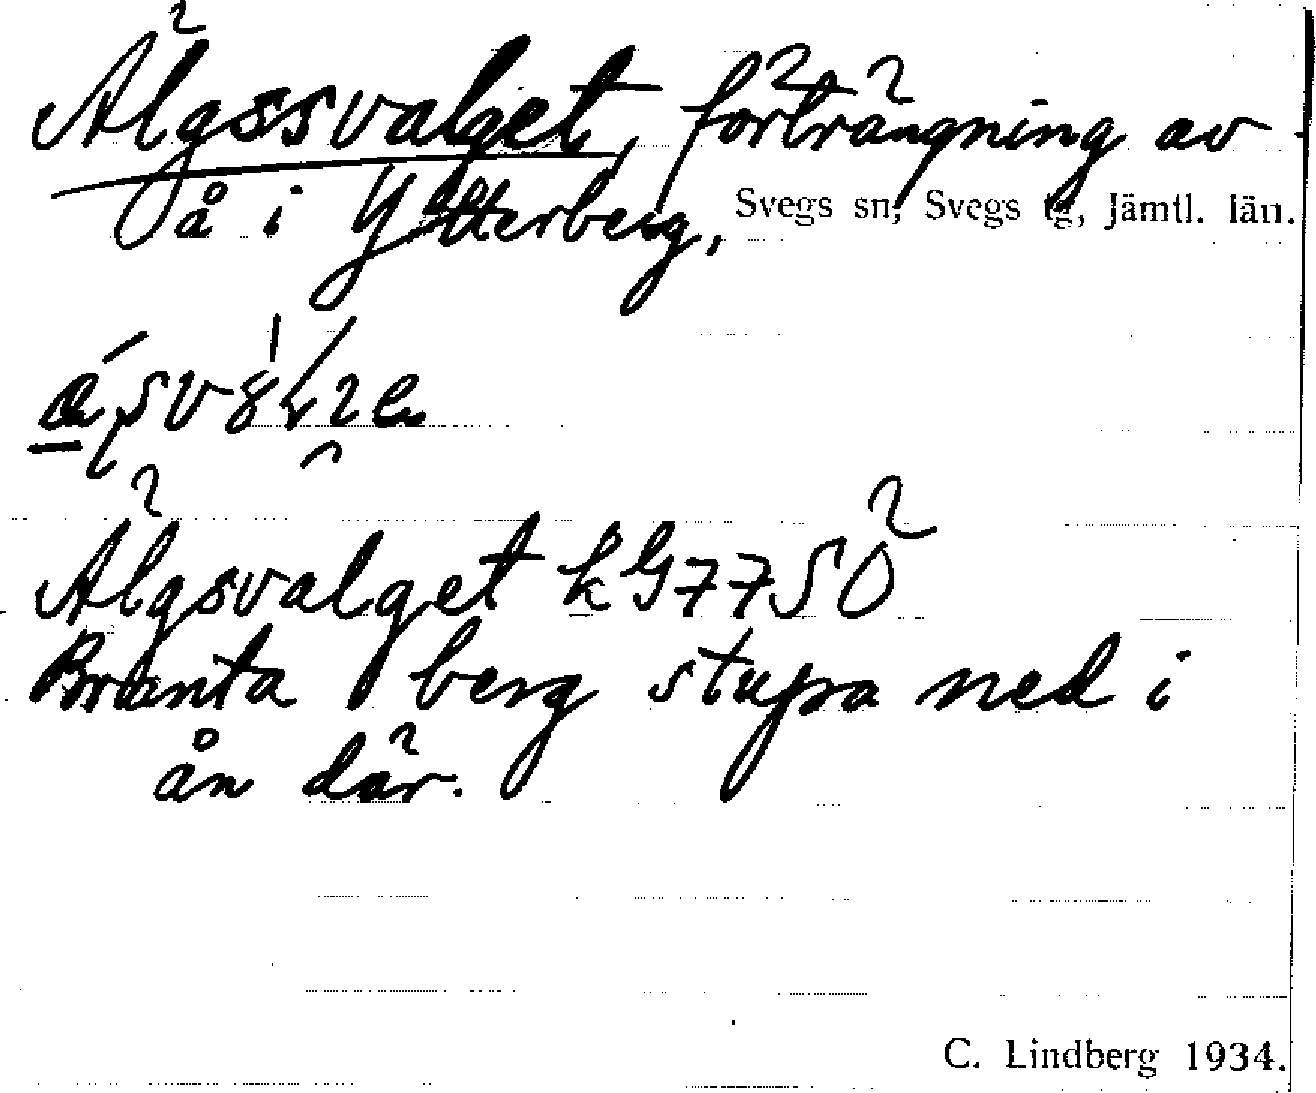 Älgssvalget, förträngning av
å i Ytterberg, Svegs sn, Svegs tg, Jämtl. län.
Älgsvalget kG77SÖ
Branta berg stupa ned i
ån där.
C. Lindberg 1934.